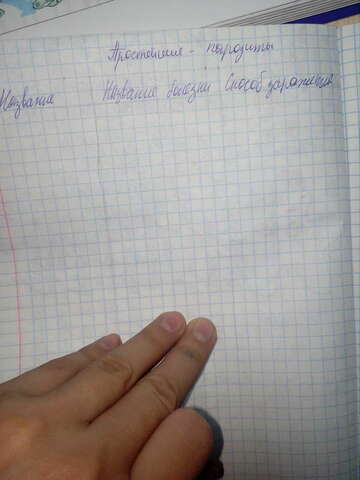 Простейшие - паразиты
Название Название болезни Способ заражения